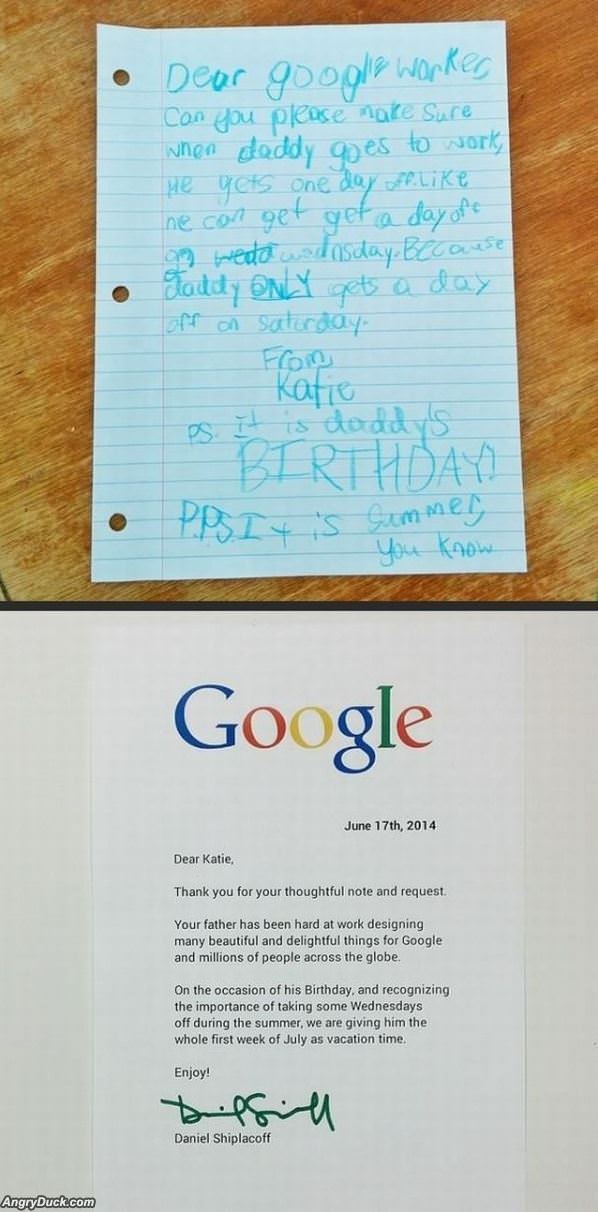 Dear google worker
Can you please make sure
when daddy goes to work,
He gets one day off. Like
he can get get a day off
on wednsday. Because
daddy ONLY gets a day
off on saturday.
From,
Katie
PS. It is daddy's
BIRTHDAY!
P.P.S. It is Summer
you know
Google
June 17th, 2014
Dear Katie,
Thank you for your thoughtful note and request.
Your father has been hard at work designing
many beautiful and delightful things for Google
and millions of people across the globe.
On the occasion of his Birthday, and recognizing
the importance of taking some Wednesdays
off during the summer, we are giving him the
whole first week of July as vacation time.
Enjoy!
Daniel Shiplacoff
AngryDuck.com